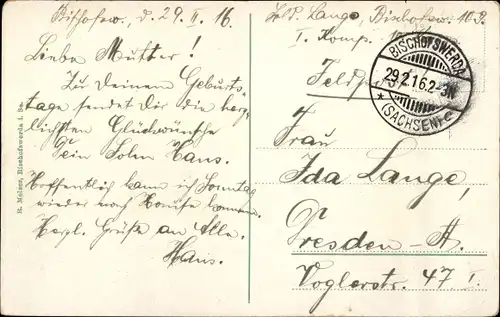 Bischofsw., d. 29. II. 16
Liebe Mutter!
Zu Deinem Geburts-
tage sendet Dir die herz-
lichsten Glückwünsche
Dein Sohn Hans.
Hoffentlich kann ich Sonntag
wieder nach Hause kommen.
Herzl. Grüße an Alle.
Hans.
R. Meizer, Bischofswerda i. Sa.
Feld. Lange, Bischofsw. 103.
I. Komp.
Feldpost
BISCHOFSWERDA
29.2.16.2-3N
* (SACHSEN) c
Frau
Ida Lange,
Dresden-A.
Voglerstr. 47 I.